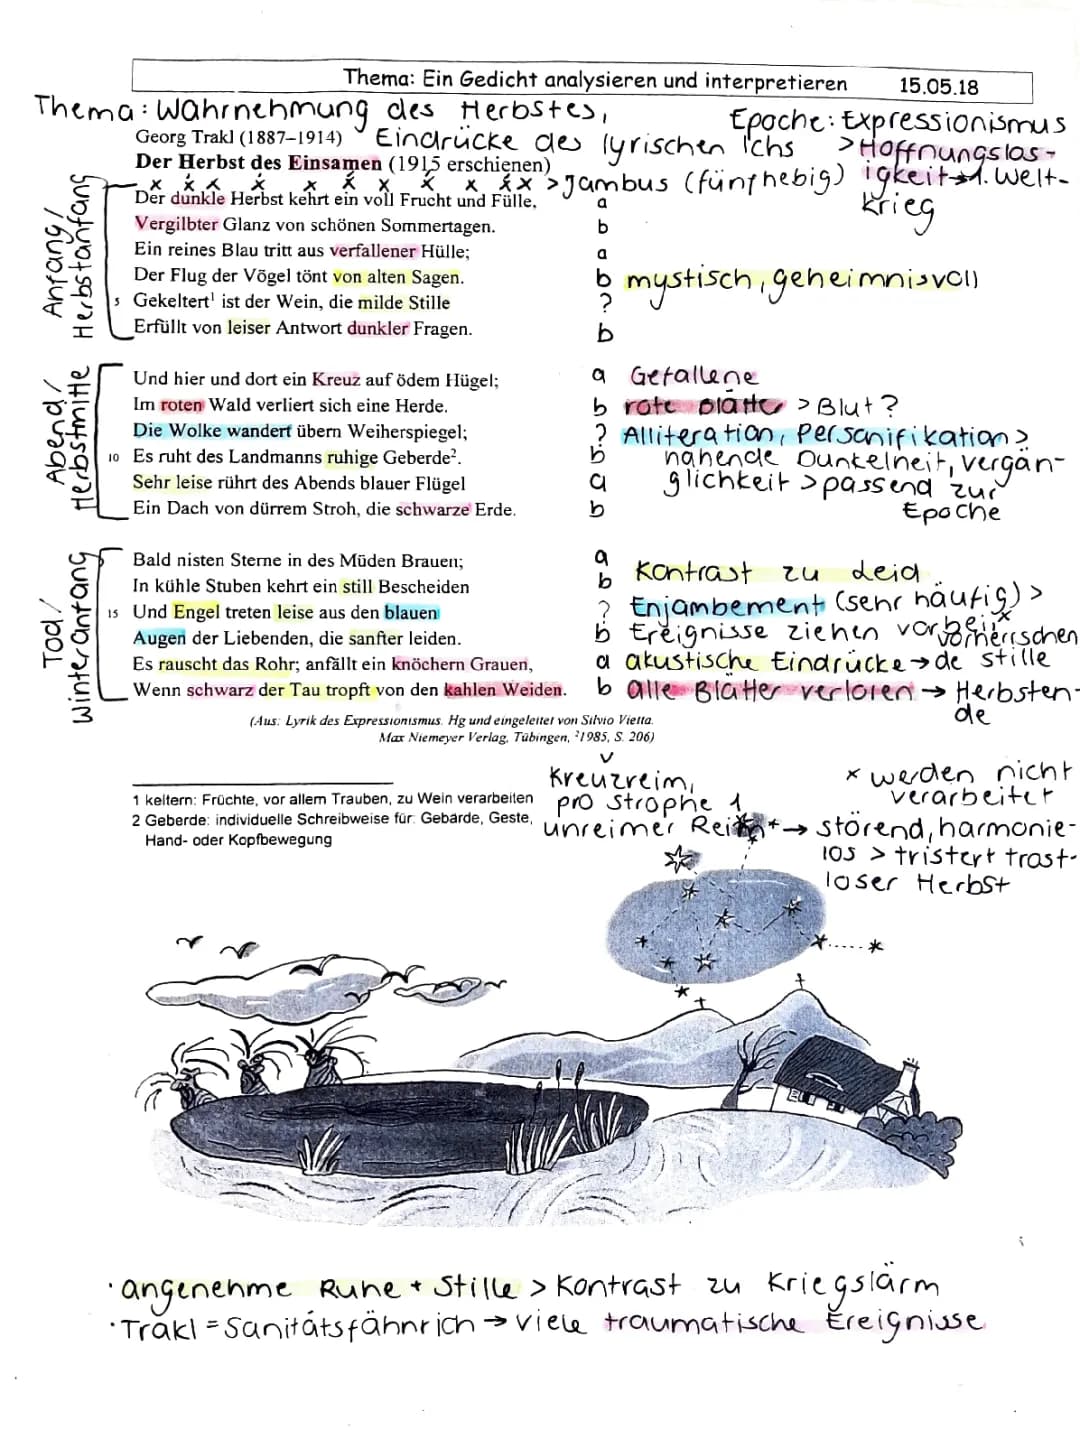 Thema: Ein Gedicht analysieren und interpretieren 15.05.18
Thema: Wahrnehmung des Herbstes,
Eindrücke des lyrischen Ichs
Epoche: Expressionismus
> Hoffnungslos-
igkeit → 1. Welt-
krieg
Georg Trakl (1887–1914)
Der Herbst des Einsamen (1915 erschienen)
x x x x x x x x x x x > Jambus (fünfhebig)
Anfang/
Herbstanfang
Der dunkle Herbst kehrt ein voll Frucht und Fülle, a
Vergilbter Glanz von schönen Sommertagen. b
Ein reines Blau tritt aus verfallener Hülle; a
Der Flug der Vögel tönt von alten Sagen. b mystisch, geheimnisvoll
5 Gekeltert¹ ist der Wein, die milde Stille ?
Erfüllt von leiser Antwort dunkler Fragen. b
Abend/
Herbstmitte
Und hier und dort ein Kreuz auf ödem Hügel; a Gefallene
Im roten Wald verliert sich eine Herde. b rote Blätter > Blut?
Die Wolke wandert übern Weiherspiegel; ? Alliteration, Personifikation >
10 Es ruht des Landmanns ruhige Geberde². b nahende Dunkelheit, vergän-
Sehr leise rührt des Abends blauer Flügel a glichkeit > passend zur
Ein Dach von dürrem Stroh, die schwarze Erde. b Epoche
Tod/
Winteranfang
Bald nisten Sterne in des Müden Brauen; a
In kühle Stuben kehrt ein still Bescheiden b Kontrast zu Leid
15 Und Engel treten leise aus den blauen ? Enjambement (sehr häufig) >
Augen der Liebenden, die sanfter leiden. b Ereignisse ziehen vorbei x vorherrschen
Es rauscht das Rohr; anfällt ein knöchern Grauen, a akustische Eindrücke → de stille
Wenn schwarz der Tau tropft von den kahlen Weiden. b alle Blätter verloren → Herbsten-
de
(Aus: Lyrik des Expressionismus. Hg und eingeleitet von Silvio Vietta.
Max Niemeyer Verlag, Tübingen, ²1985, S. 206)
Kreuzreim,
pro Strophe 1
unreiner Reim → störend, harmonie-
los > tristert trost-
loser Herbst
x werden nicht
verarbeitet
1 keltern: Früchte, vor allem Trauben, zu Wein verarbeiten
2 Geberde: individuelle Schreibweise für: Gebärde, Geste,
Hand- oder Kopfbewegung
· angenehme Ruhe + Stille > Kontrast zu Kriegslärm
· Trakl = Sanitätsfähnrich → viele traumatische Ereignisse